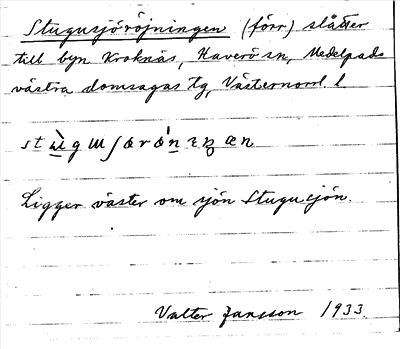 Stugusjöröjningen (förr) slåtter
till byn Kroknäs, Haverö sn, Medelpads
västra domsagas tg, Västernorrl. l
Ligger väster om sjön Stugusjön.
Valter Jansson 1933.